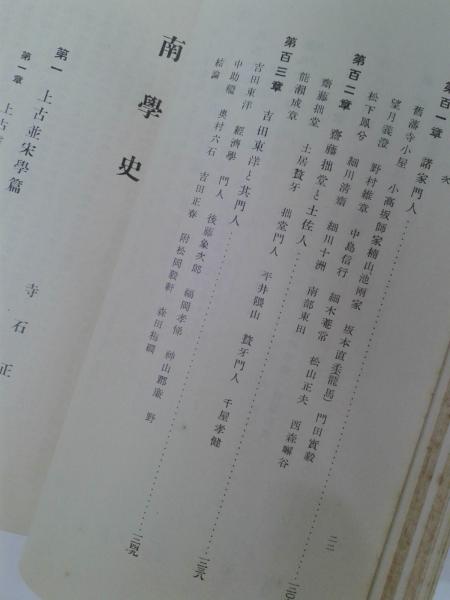 第百一章 諸家門人
舊藩寺小屋 小高坂師家楠山池兩家 坂本直柔(龍馬) 門田實毅
望月義澄 野村維章 中島信行 細木 常 松山正夫 西森 谷
松下風兮
第百二章 齋藤拙堂と土佐人
齋藤拙堂 細川清齋 細川十洲 南部東田
能瀨成章 土居贅牙 拙堂門人 平井隈山 贅牙門人 千屋孝健
第百三章 吉田東洋と其門人
吉田東洋 經濟學 門人 後藤象次郎 福岡孝悌 神山郡廉 野
中助繼 奥村六石 吉田正春 附松岡毅軒 森田梅礀
結論
二二
一二〇
一二三八
一二四九
南學史
寺石正
第一 上古並宋學篇
第一章 上古